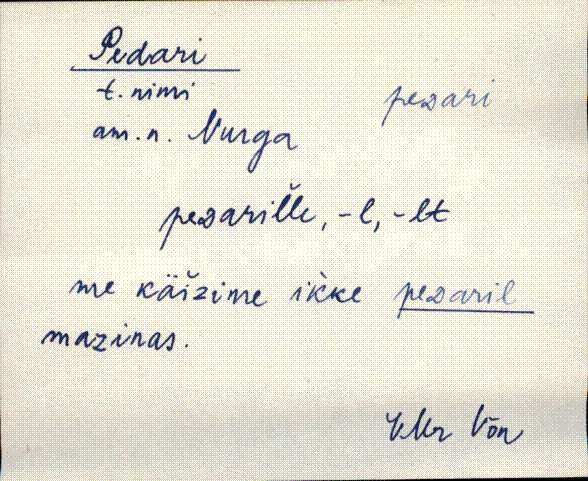 Pedari
t. nimi
pezari
am. n. Nurga
pezarille, -l, -lt
me käizime ikke pezaril
mazinas.
VMr Vōn